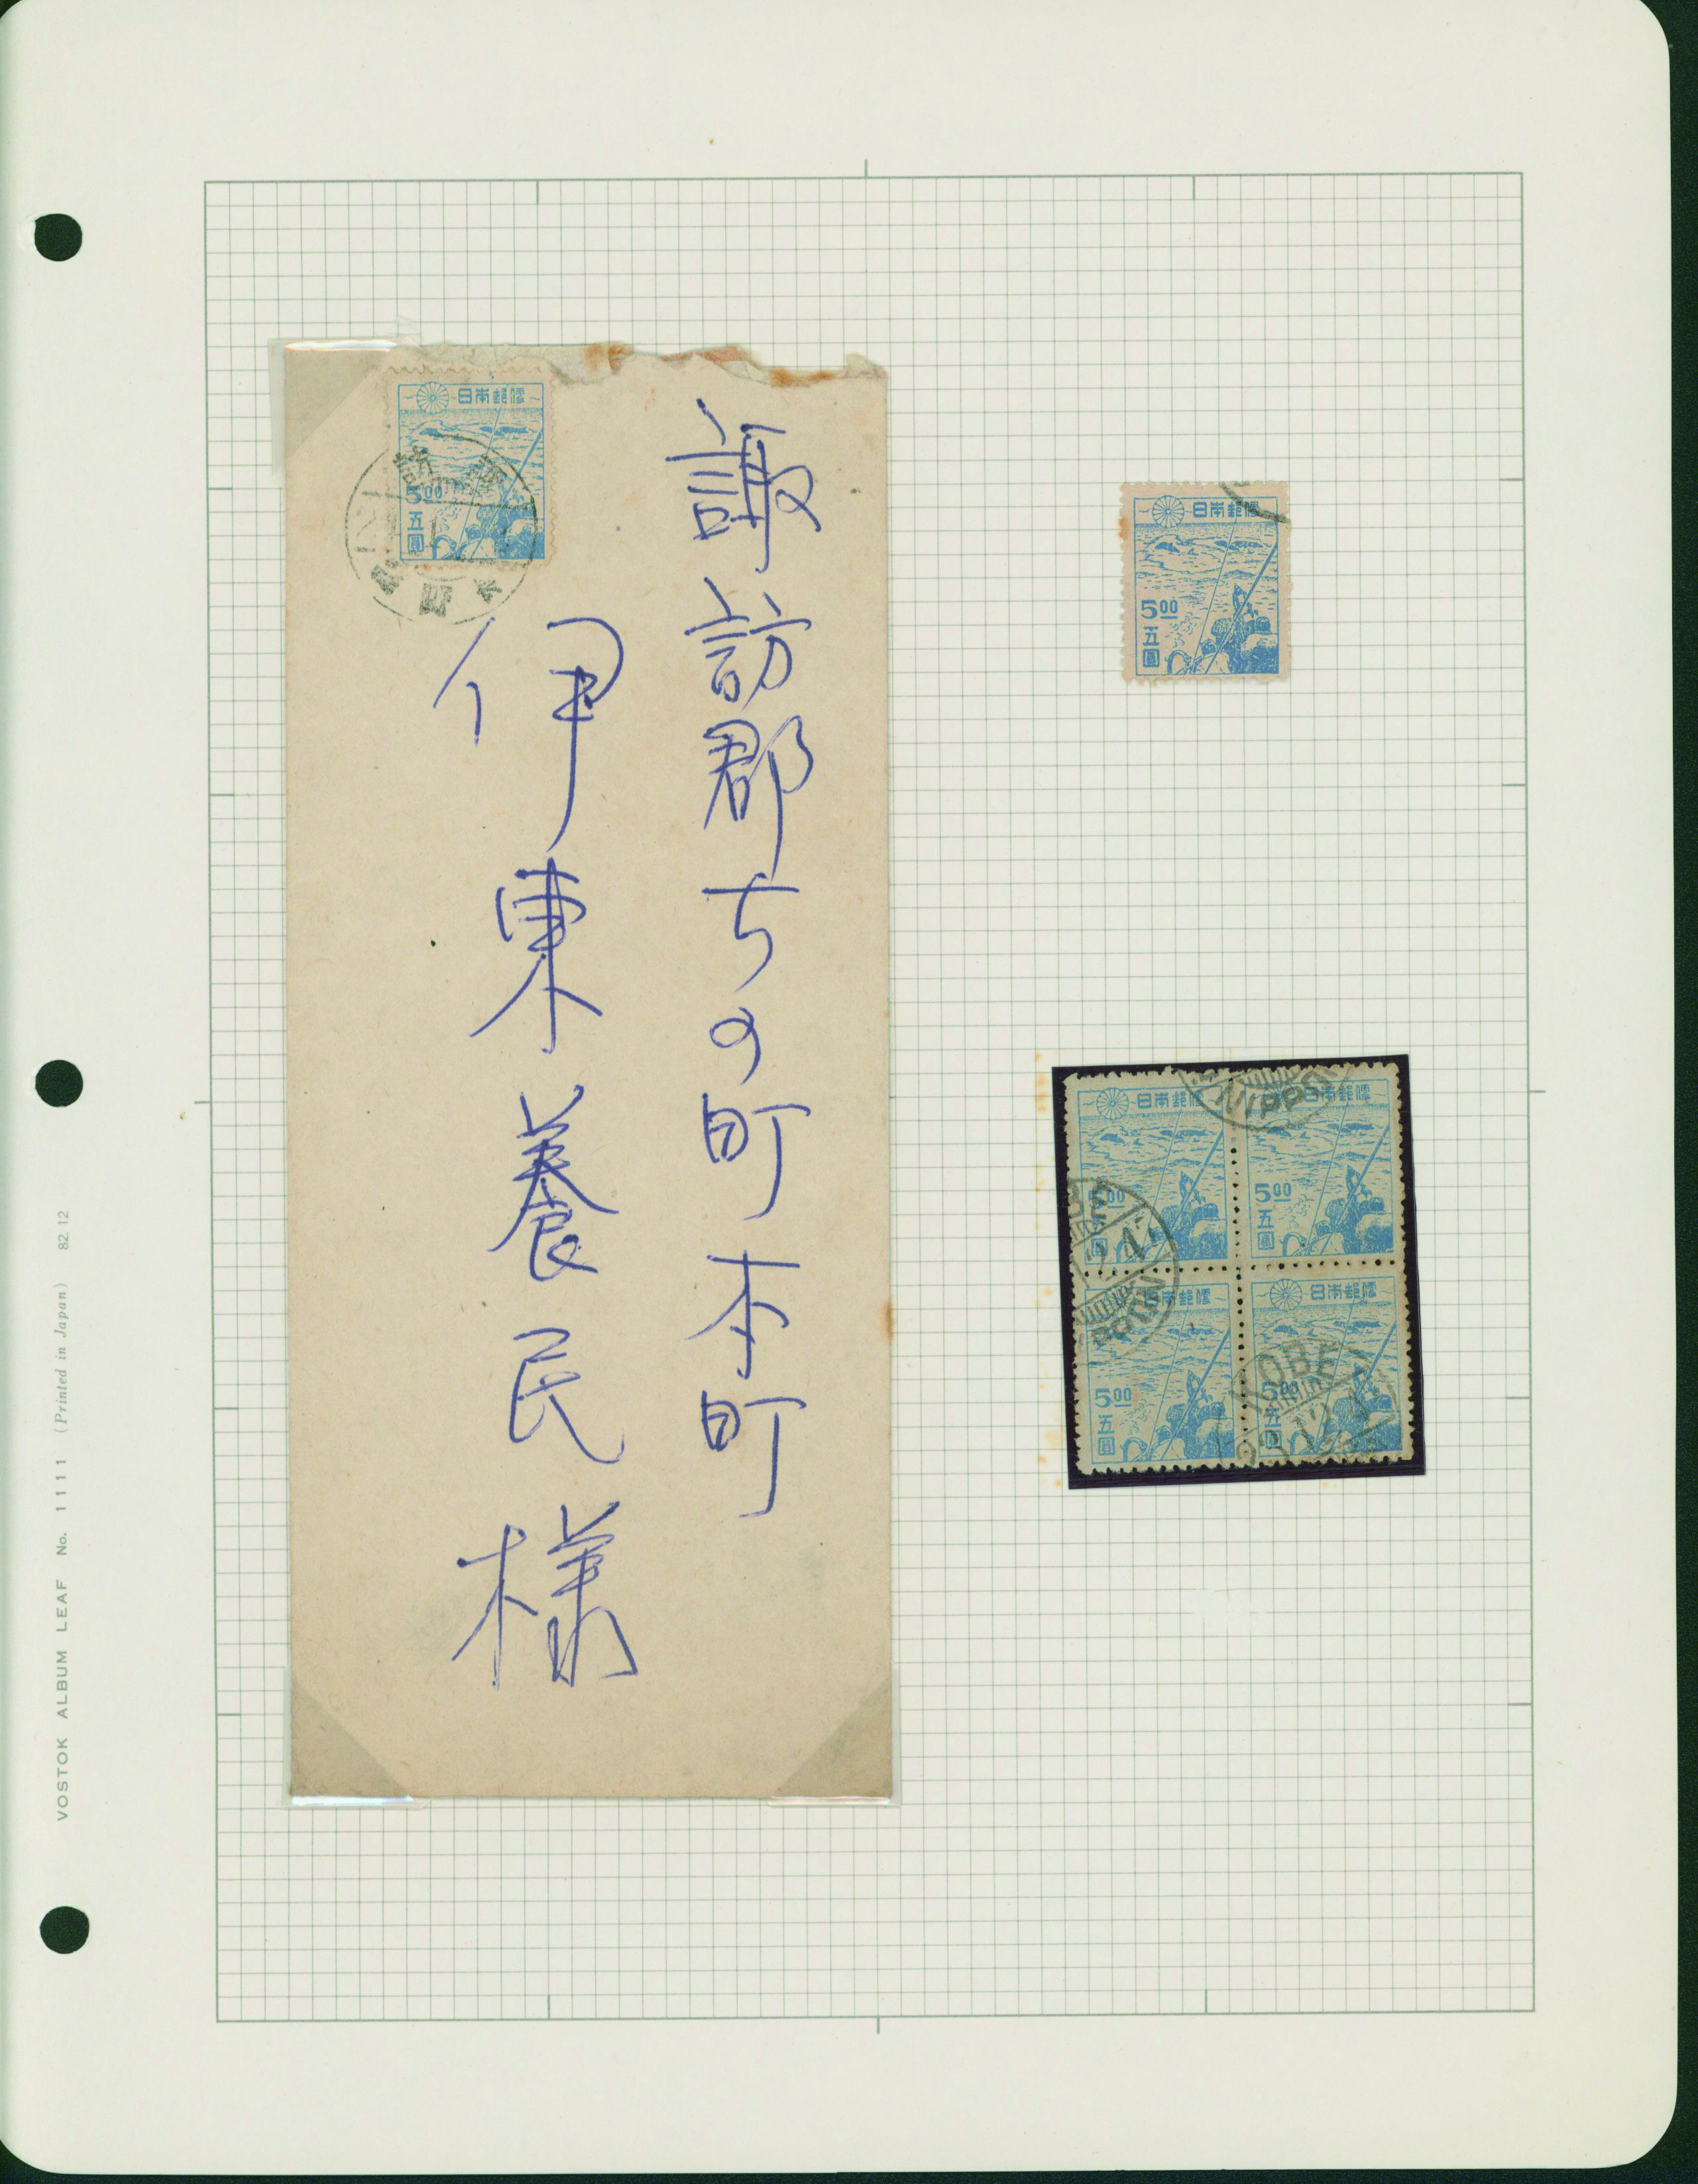 諏訪郡ちの町本町
伊東養民様
日本郵便
5.00
五圓
日本郵便
5.00
五圓
NIPPON
日本郵便
日本郵便
5.00
五圓
5.00
五圓
日本郵便
日本郵便
5.00
五圓
KOBE
5.00
五圓
VOSTOK ALBUM LEAF No. 1111 (Printed in Japan) 82.12